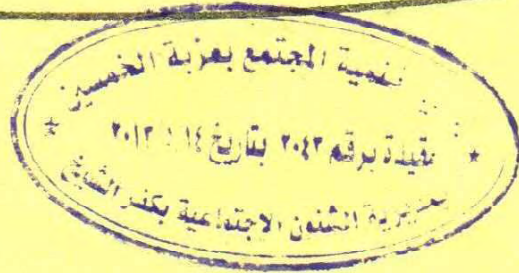 تنمية المجتمع بعزبة الخمسين
مقيدة برقم ٢٠٤٣ بتاريخ
الشئون الاجتماعية بكفر الشيخ